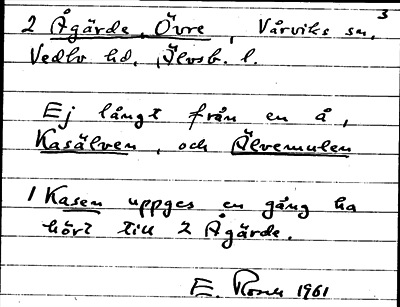 3
2 Ågärde, Övre, Vårviks sn,
Vedbo hd, Älvsb. l.
Ej långt från en å,
Kasälven, och Älvemulen
1 Kasen uppges en gång ha
hört till 2 Ågärde.
E. 1961